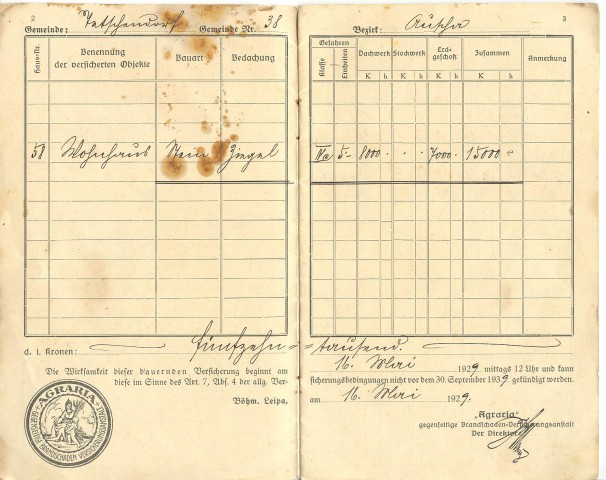 2
Gemeinde: Tetschendorf Gemeinde Nr. 38
Haus-Nr.
Benennung der versicherten Objekte
Bauart
Bedachung
58 Wohnhaus Stein Ziegel
d. i. Kronen: fünfzehn-
Die Wirksamkeit dieser dauernden Versicherung beginnt am
diese im Sinne des Art. 7, Abs. 4 der allg. Ver-
Böhm. Leipa,
AGRARIA
GEGENSEITIGE BRANDSCHADEN VERSICHERUNGSANSTALT
3
Bezirk: Auscha
Gefahren
Klasse
Einheiten
Dachwerk Stockwerk Erd-
geschoß
Zusammen
Anmerkung
K h K h K h K h
5- 8000 . . . 7000 . 15000 -
tausend.
16. Mai 1929 mittags 12 Uhr und kann
sicherungsbedingungen nicht vor dem 30. September 1939 gekündigt werden.
am 16. Mai 1929.
„Agraria“
gegenseitige Brandschaden-Versicherungsanstalt
Der Direktor: